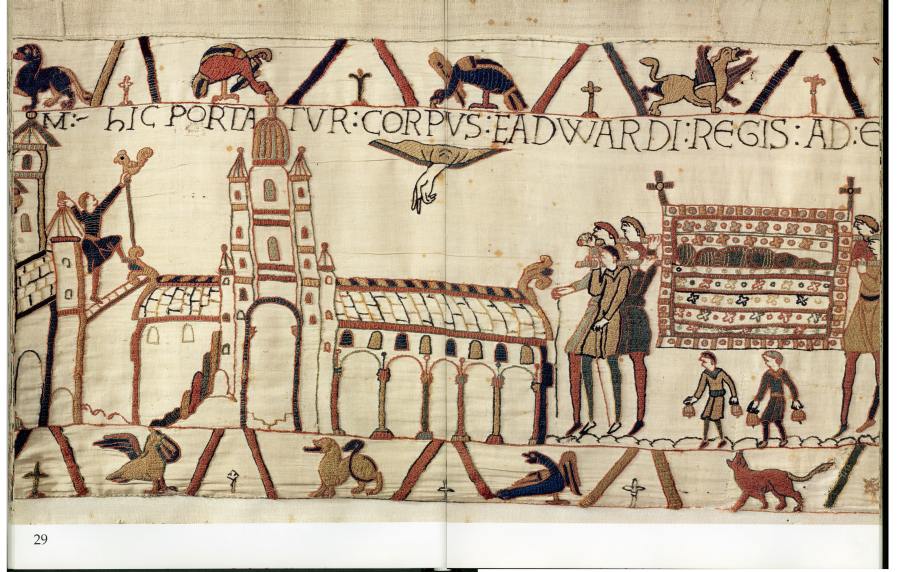 M:- hIC PORTATVR: CORPVS: EADWARDI: REGIS: AD: E
29